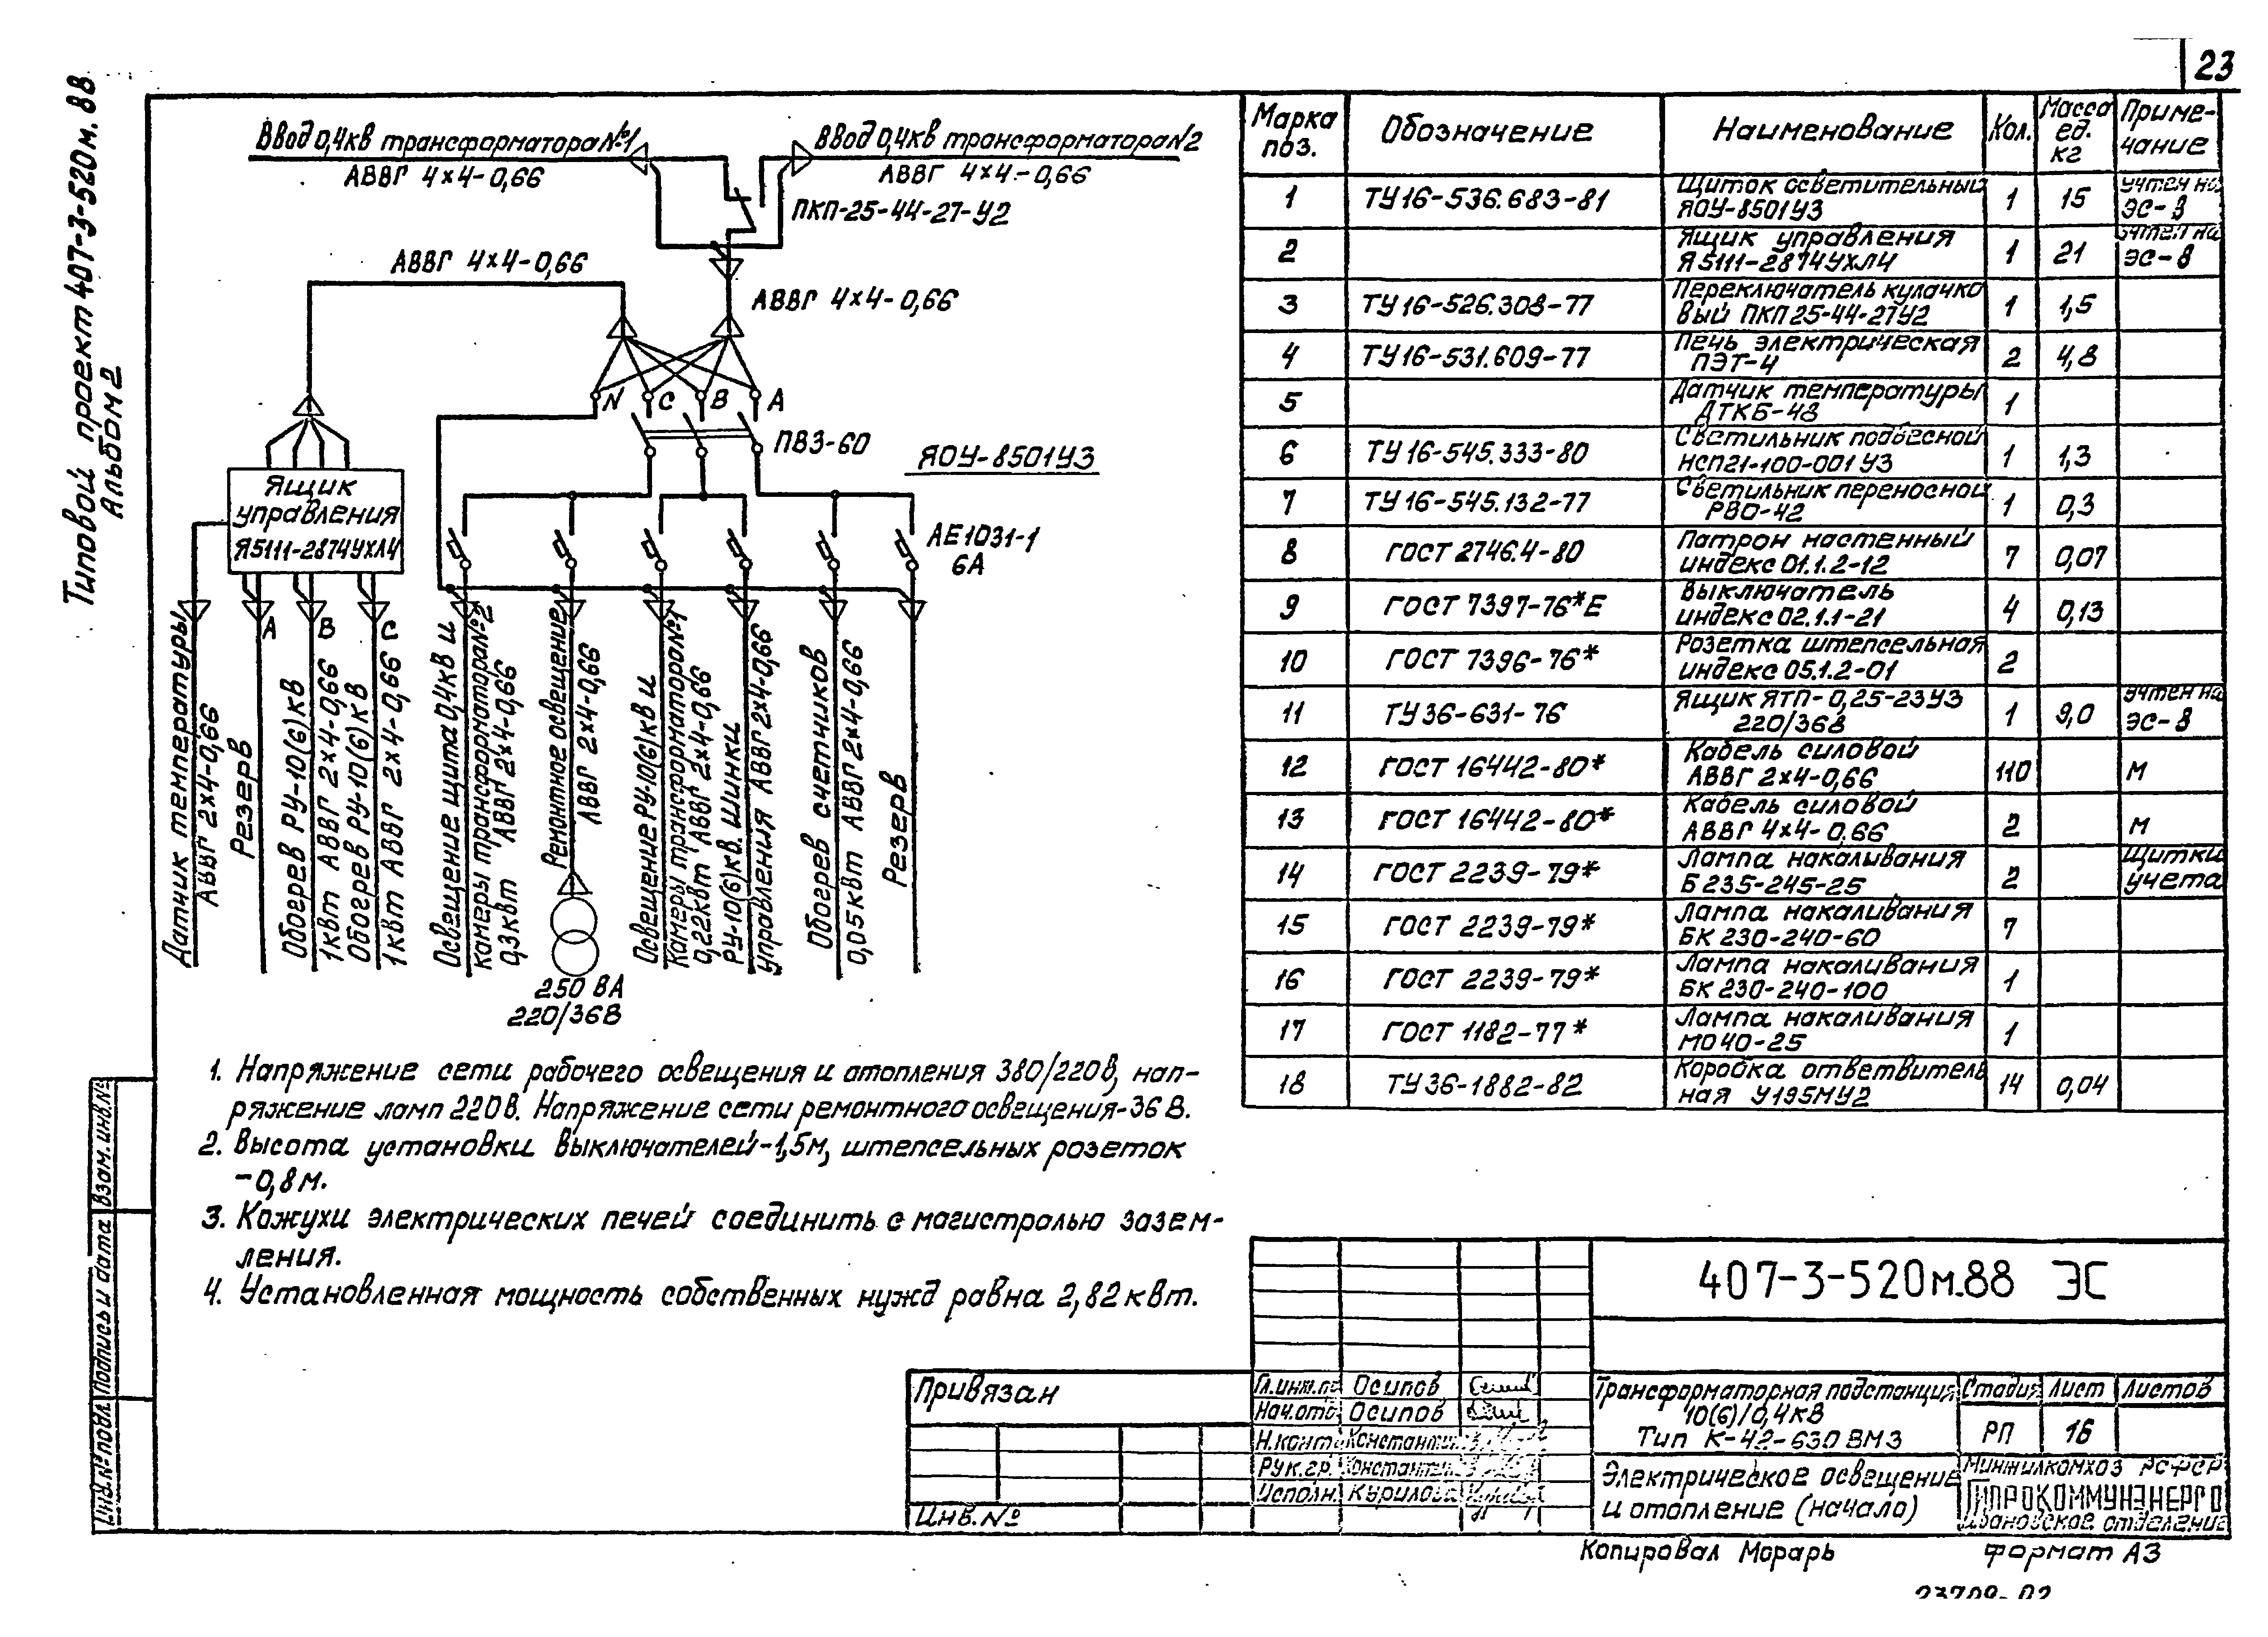 23
Типовой проект 407-3-520м.88
Альбом 2
Ввод 0,4кв трансформатора №1
АВВГ 4×4-0,66
Ввод 0,4кв трансформатора №2
АВВГ 4×4-0,66
ПКП-25-44-27-У2
АВВГ 4×4-0,66
АВВГ 4×4-0,66
N C B A
ПВ3-60
ЯОУ-8501У3
Ящик
управления
Я5111-2874УХЛ4
АЕ1031-1
6А
A B C
Датчик температуры
АВВГ 2×4-0,66
Резерв
Обогрев РУ-10(6)кВ
1квт АВВГ 2×4-0,66
Обогрев РУ-10(6)кВ
1квт АВВГ 2×4-0,66
Освещение щита 0,4кв и
камеры трансформатора №2
0,3квт АВВГ 2×4-0,66
Ремонтное освещение
АВВГ 2×4-0,66
250 ВА
220/36В
Освещение РУ-10(6)кв и
камеры трансформатора №1
0,22квт АВВГ 2×4-0,66
РУ-10(6)кв. Шинки
управления АВВГ 2×4-0,66
Обогрев счетчиков
0,05квт АВВГ 2×4-0,66
Резерв
1. Напряжение сети рабочего освещения и отопления 380/220В, нап-
ряжение ламп 220В. Напряжение сети ремонтного освещения-36 В.
2. Высота установки выключателей-1,5м, штепсельных розеток
-0,8м.
3. Кожухи электрических печей соединить с магистралью зазем-
ления.
4. Установленная мощность собственных нужд равна 2,82квт.
Марка поз. Обозначение Наименование Кол. Масса ед. кг Приме-чание
1 ТУ16-536.683-81 Щиток осветительный ЯОУ-8501У3 1 15 учтен на ЭС-8
2 Ящик управления Я5111-2874УХЛ4 1 21 учтен на ЭС-8
3 ТУ16-526.308-77 Переключатель кулачко вый ПКП25-44-27У2 1 1,5
4 ТУ16-531.609-77 Печь электрическая ПЭТ-4 2 4,8
5 Датчик температуры ДТКБ-48 1
6 ТУ16-545.333-80 Светильник подвесной НСП21-100-001У3 1 1,3
7 ТУ16-545.132-77 Светильник переносной РВО-42 1 0,3
8 ГОСТ 2746.4-80 Патрон настенный индекс 01.1.2-12 7 0,07
9 ГОСТ 7397-76*Е Выключатель индекс 02.1.1-21 4 0,13
10 ГОСТ 7396-76* Розетка штепсельная индекс 05.1.2-01 2
11 ТУ36-631-76 Ящик ЯТП-0,25-23У3 220/36В 1 9,0 учтен на ЭС-8
12 ГОСТ 16442-80* Кабель силовой АВВГ 2×4-0,66 110 м
13 ГОСТ 16442-80* Кабель силовой АВВГ 4×4-0,66 2 м
14 ГОСТ 2239-79* Лампа накаливания Б 235-245-25 2 Щитки учета
15 ГОСТ 2239-79* Лампа накаливания БК 230-240-60 7
16 ГОСТ 2239-79* Лампа накаливания БК 230-240-100 1
17 ГОСТ 1182-77* Лампа накаливания МО 40-25 1
18 ТУ36-1882-82 Коробка ответвитель ная У195МУ2 14 0,04
Взам. инв.№
Подпись и дата
Инв.№ подл.
Привязан
Инв.№
407-3-520м.88 ЭС
Гл.инж.пр Осипов
Нач.отд Осипов
Н.конт. Константин
Рук.гр. Константин
Исполн. Курилова
Трансформаторная подстанция
10(6)/0,4кВ
Тип К-42-630 ВМ3
Стадия Лист Листов
РП 16
Электрическое освещение
и отопление (начало)
Минжилкомхоз РСФСР
ГИПРОКОММУНЭНЕРГО
Ивановское отделение
Копировал Морарь
формат А3
23709-02